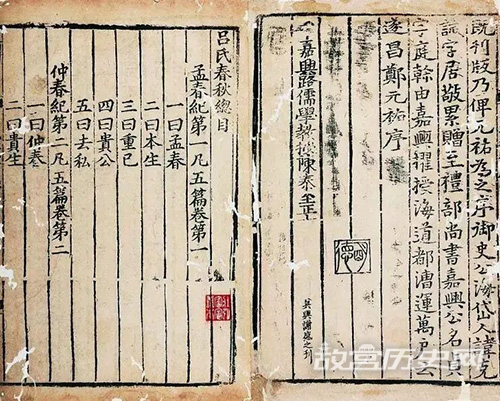 既刊版乃俾元祐為之序御史公海岱人諱克
字居敬累贈至禮部尚書嘉興公名貞
字庭幹由嘉興擢授海道都漕運萬戶云
遂昌鄭元祐序
嘉興路儒學教授陳泰至正
吳興謝盛之刊
吕氏春秋總目
孟春紀第一凡五篇卷第一
一曰孟春
二曰本生
三曰重已
四曰貴公
五曰去私
仲春紀第二凡五篇卷第二
一曰仲春
二曰貴生
故宫历史网